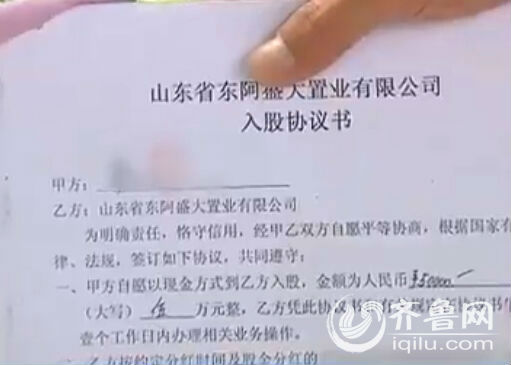 山东省东阿盛大置业有限公司
入股协议书
甲方：
乙方：山东省东阿盛大置业有限公司
为明确责任，恪守信用，经甲乙双方自愿平等协商，根据国家有
律、法规，签订如下协议，共同遵守：
一、甲方自愿以现金方式到乙方入股，金额为人民币¥50000.—
（大写）伍 万元整，乙方凭此协议书
壹个工作日内办理相关业务操作。
二、乙方按约定分红时间及股金分红的
齐鲁网
iqilu.com